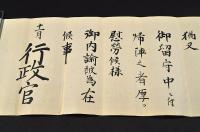 猶又
御留守中は
帰陣之者厚く
慰労候様
御内諭被為在
候事
十一月
行政官